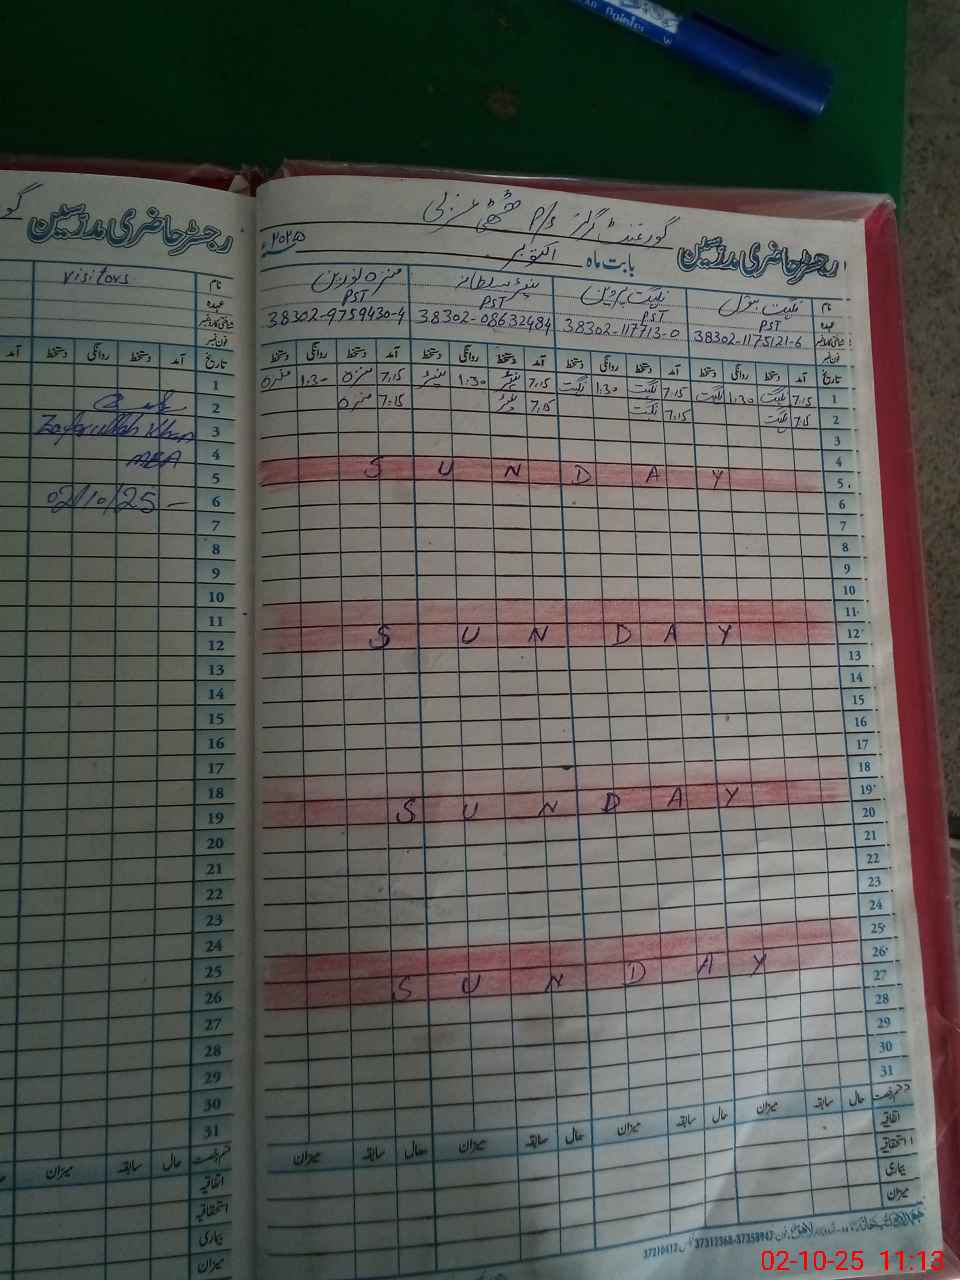 رجسٹر حاضری مدرسین
گورنمنٹ گرلز P/S
بابت ماہ اکتوبر ۲۰۲۵ء
نام
عہدہ PST PST PST PST
38302-1175121-6 38302-117713-0 38302-08632484 38302-9759430-4
فون نمبر
تاریخ آمد دستخط روانگی دستخط آمد دستخط روانگی دستخط آمد دستخط روانگی دستخط آمد دستخط روانگی دستخط
1 7:15 نگہت 1:30 نگہت 7:15 نگہت 1:30 نگہت 7:15 1:30 7:15 1:30
2 7:15 نگہت 7:15 نگہت 7:15 7:15
3
4
5 SUNDAY
6
7
8
9
10
11
12 SUNDAY
13
14
15
16
17
18
19 SUNDAY
20
21
22
23
24
25
26 SUNDAY
27
28
29
30
31
حال سابقہ میزان حال سابقہ میزان حال سابقہ میزان حال سابقہ میزان
اتفاقیہ
استحقاقیہ
بیماری
میزان
37210412 37312368-37358947
رجسٹر حاضری مدرسین
نام visitors
عہدہ
فون نمبر
تاریخ آمد دستخط روانگی دستخط آمد
1
2
3 Zafarullah Khan
4 MEA
5
6 02/10/25
7
8
9
10
11
12
13
14
15
16
17
18
19
20
21
22
23
24
25
26
27
28
29
30
31
حال سابقہ میزان
اتفاقیہ
استحقاقیہ
بیماری
میزان
Pointer
02-10-25 11:13